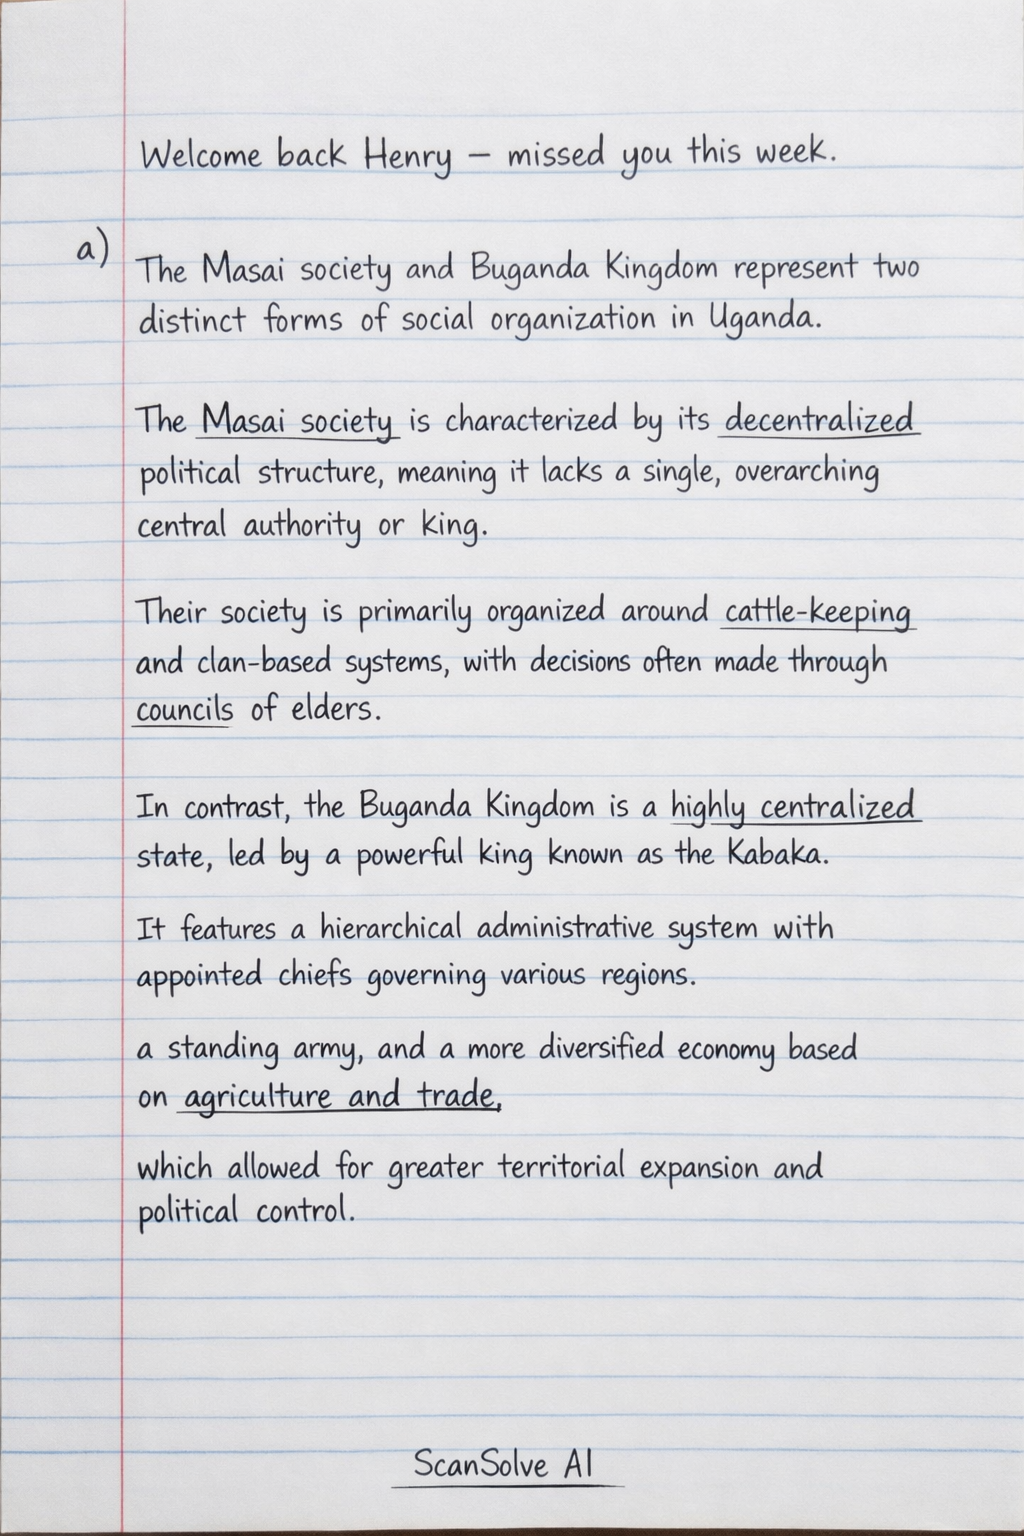 Welcome back Henry – missed you this week.
a)
The Masai society and Buganda Kingdom represent two
distinct forms of social organization in Uganda.
The Masai society is characterized by its decentralized
political structure, meaning it lacks a single, overarching
central authority or king.
Their society is primarily organized around cattle-keeping
and clan-based systems, with decisions often made through
councils of elders.
In contrast, the Buganda Kingdom is a highly centralized
state, led by a powerful king known as the Kabaka.
It features a hierarchical administrative system with
appointed chiefs governing various regions.
a standing army, and a more diversified economy based
on agriculture and trade,
which allowed for greater territorial expansion and
political control.
ScanSolve AI